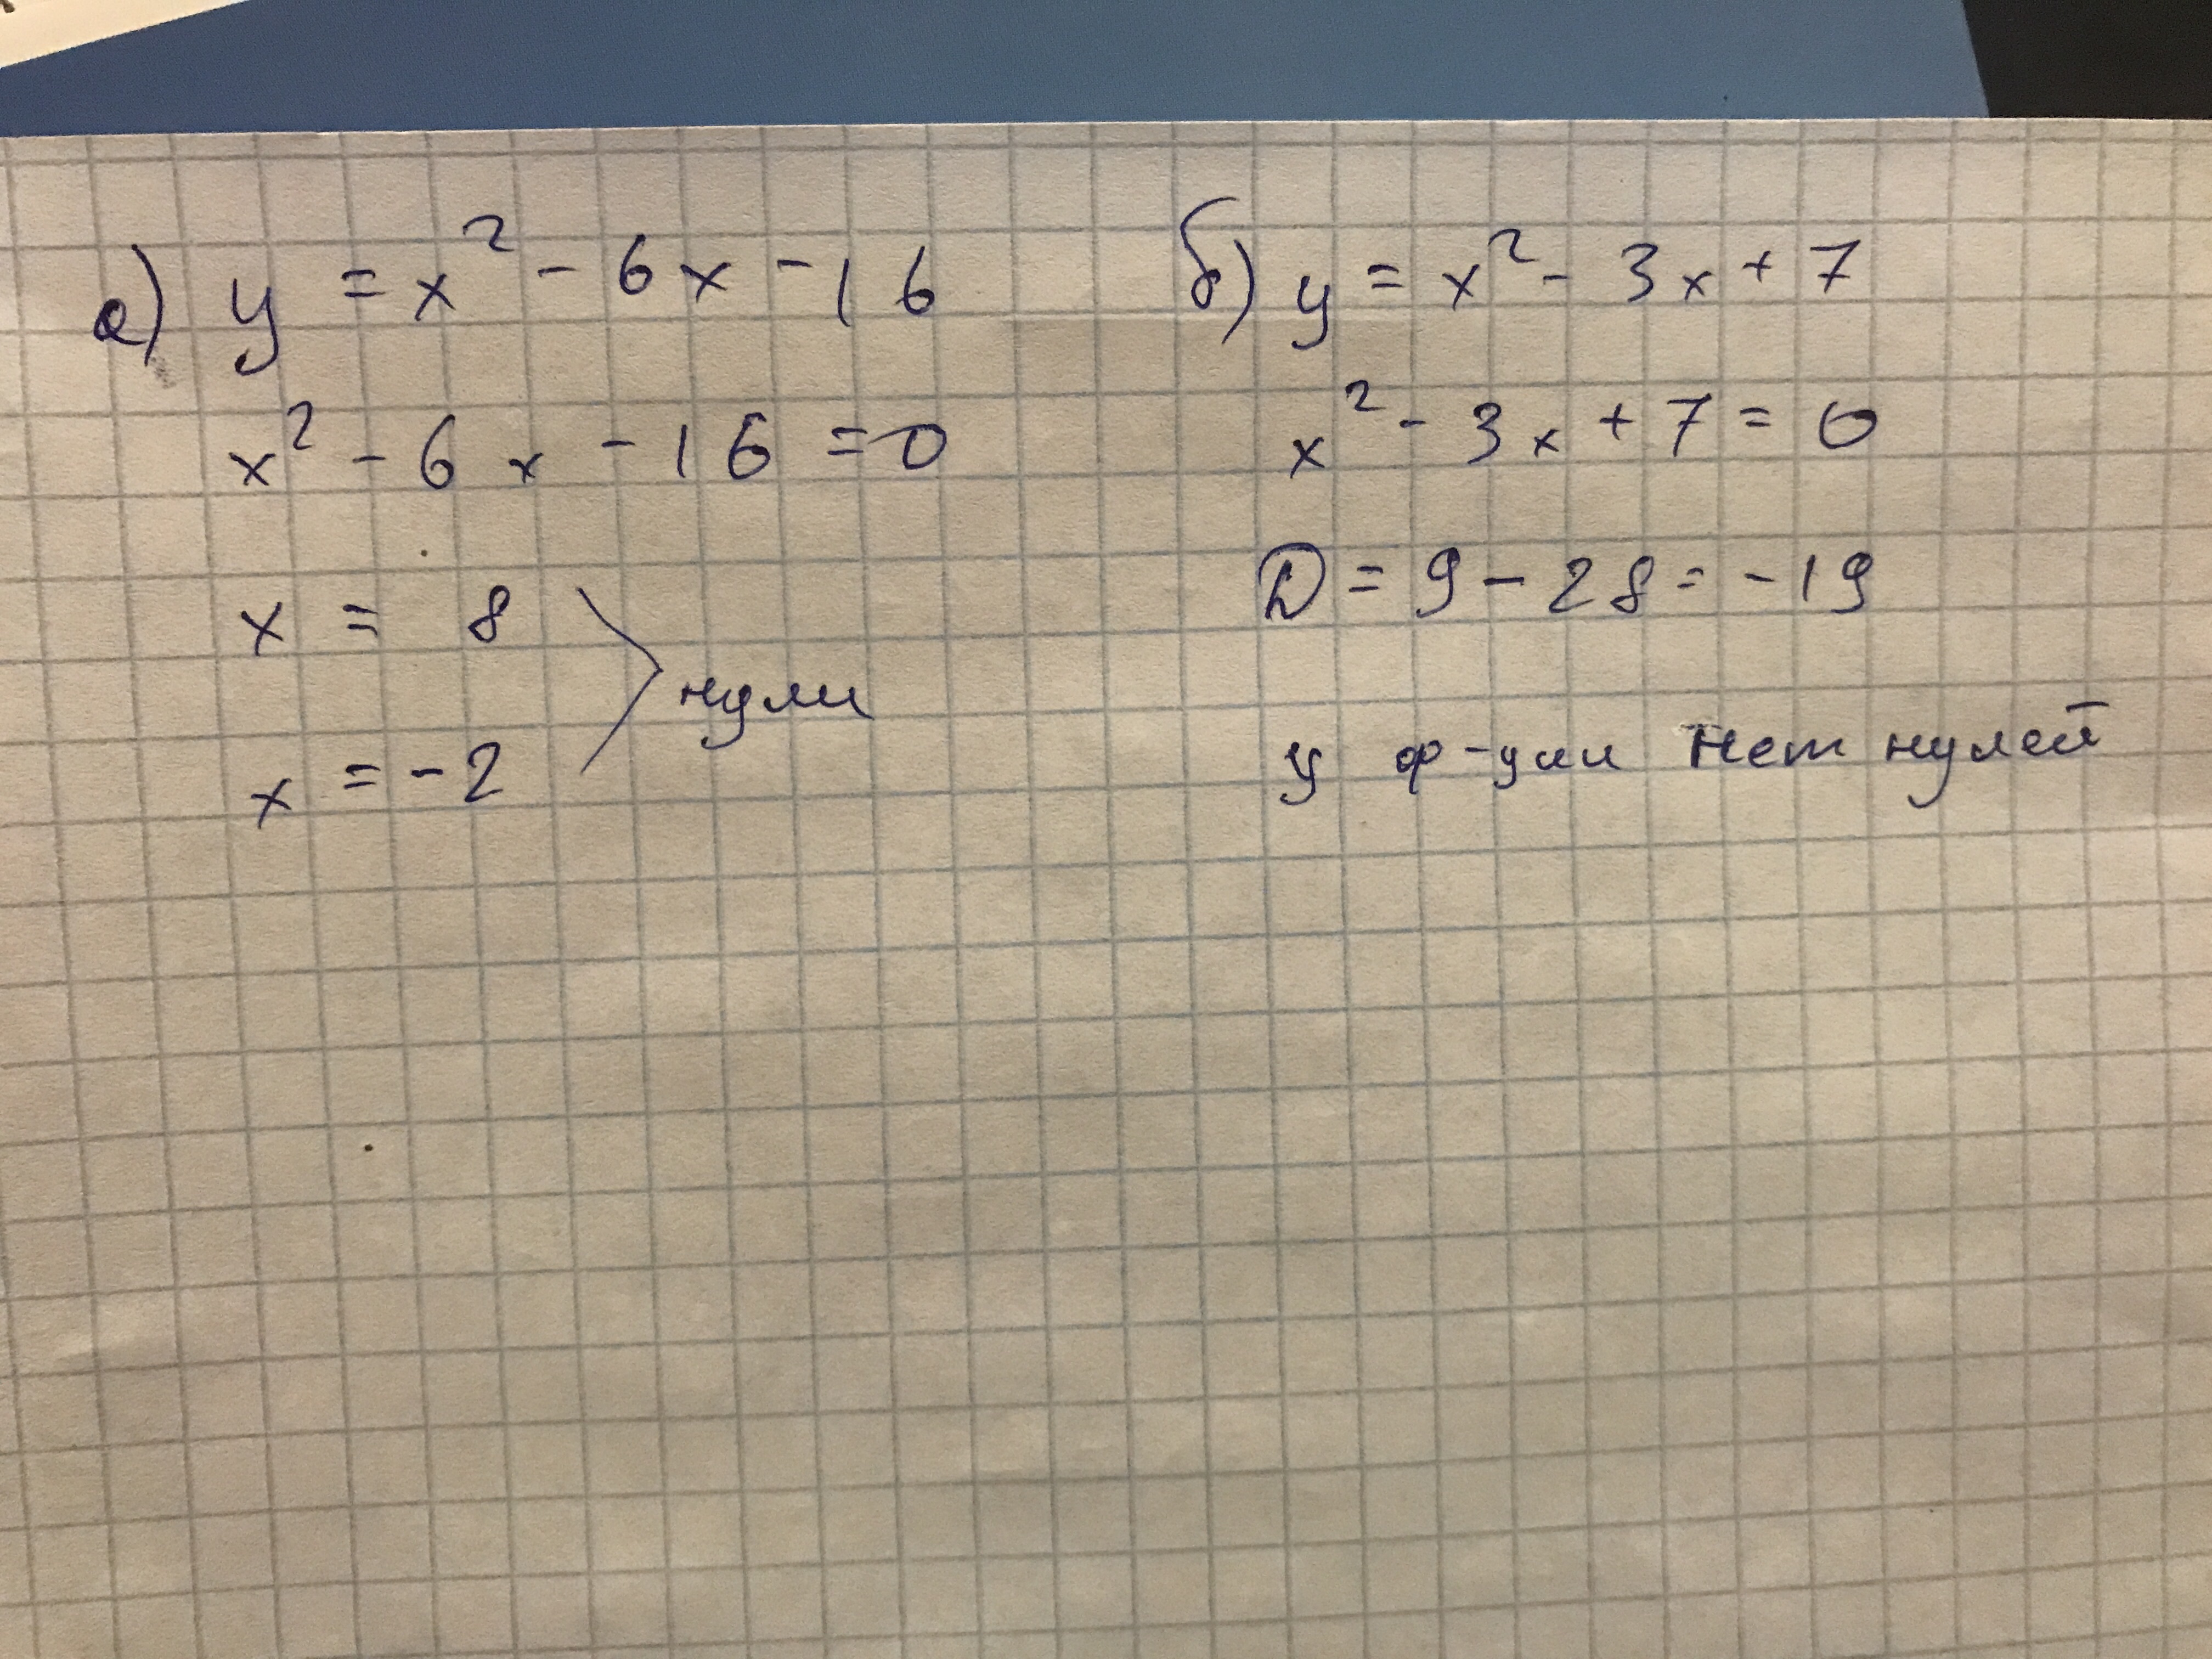 а) y = x² - 6x - 16
x² - 6x - 16 = 0
x = 8
x = -2
нули
б) y = x² - 3x + 7
x² - 3x + 7 = 0
D = 9 - 28 = -19
у ф-ции нет нулей